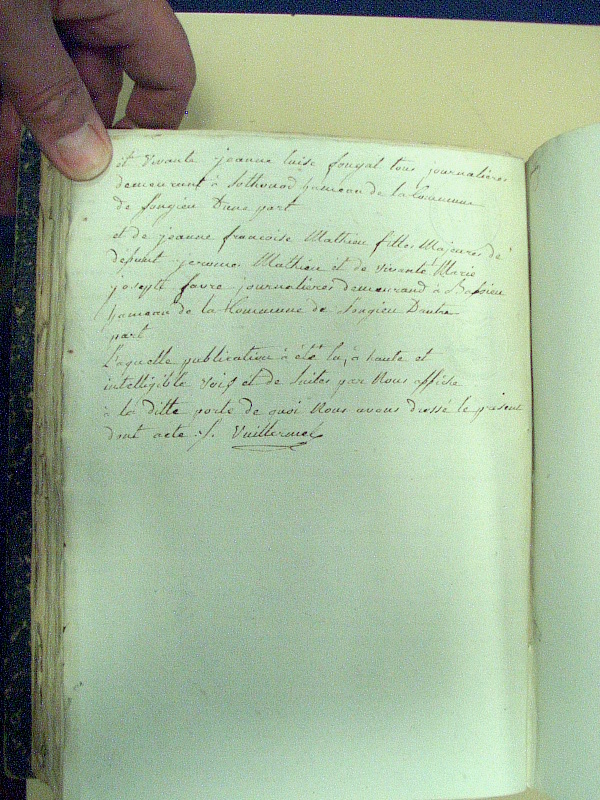 et vivante jeanne luise fongal tous journalières
demeurant à Sothonod hameau de la Commune
de Songieu Dune part
et de jeanne francoise Mathieu filles Majeures de
defeunt jerome Mathieu et de vivante Marie
joseph favre journalières demeurand à Bassieu
hameau de la Commune de Songieu Dautre
part
Laquelle publication à été lu, à haute et
intelligible voix et de suites par Nous affiche
à la ditte porte de quoi Nous avons dressé le présent
dont acte ./. Vuillermet